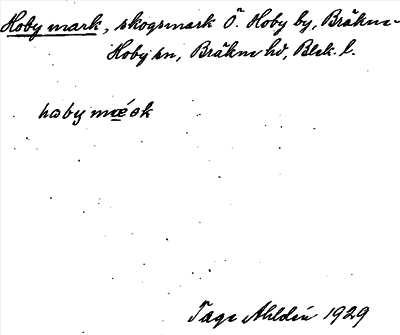 Hoby mark, skogsmark Ö. Hoby by, Bräkne-
Hoby sn, Bräkne hd, Blek. l.
hoby
Tage Ahldén 1929